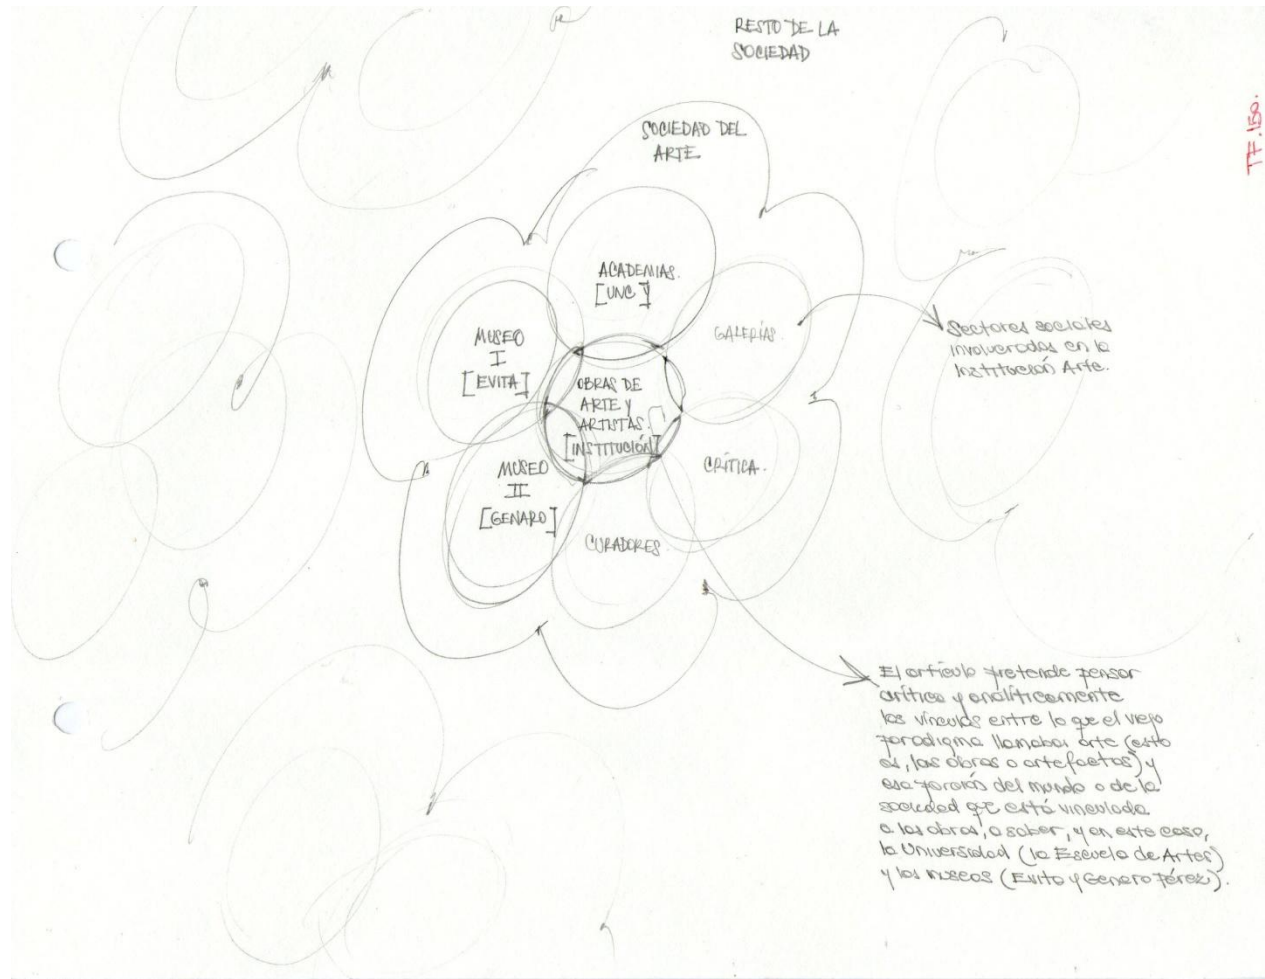 RESTO DE LA
SOCIEDAD
TF.150.
SOCIEDAD DEL
ARTE
ACADEMIAS.
[UNC Y]
GALERÍAS.
MUSEO
I
[EVITA]
OBRAS DE
ARTE Y
ARTISTAS.
[INSTITUCIÓN]
MUSEO
II
[GENARO]
CRÍTICA.
CURADORES.
Sectores sociales
involucrados en la
Institución Arte.
El artículo pretende pensar
crítica y analíticamente
los vínculos entre lo que el viejo
paradigma llamaba arte (esto
es, las obras o artefactos) y
esa porción del mundo o de la
sociedad que está vinculada
a las obras, a saber, y en este caso,
la Universidad (la Escuela de Artes)
y los museos (Evita y Genaro Pérez).